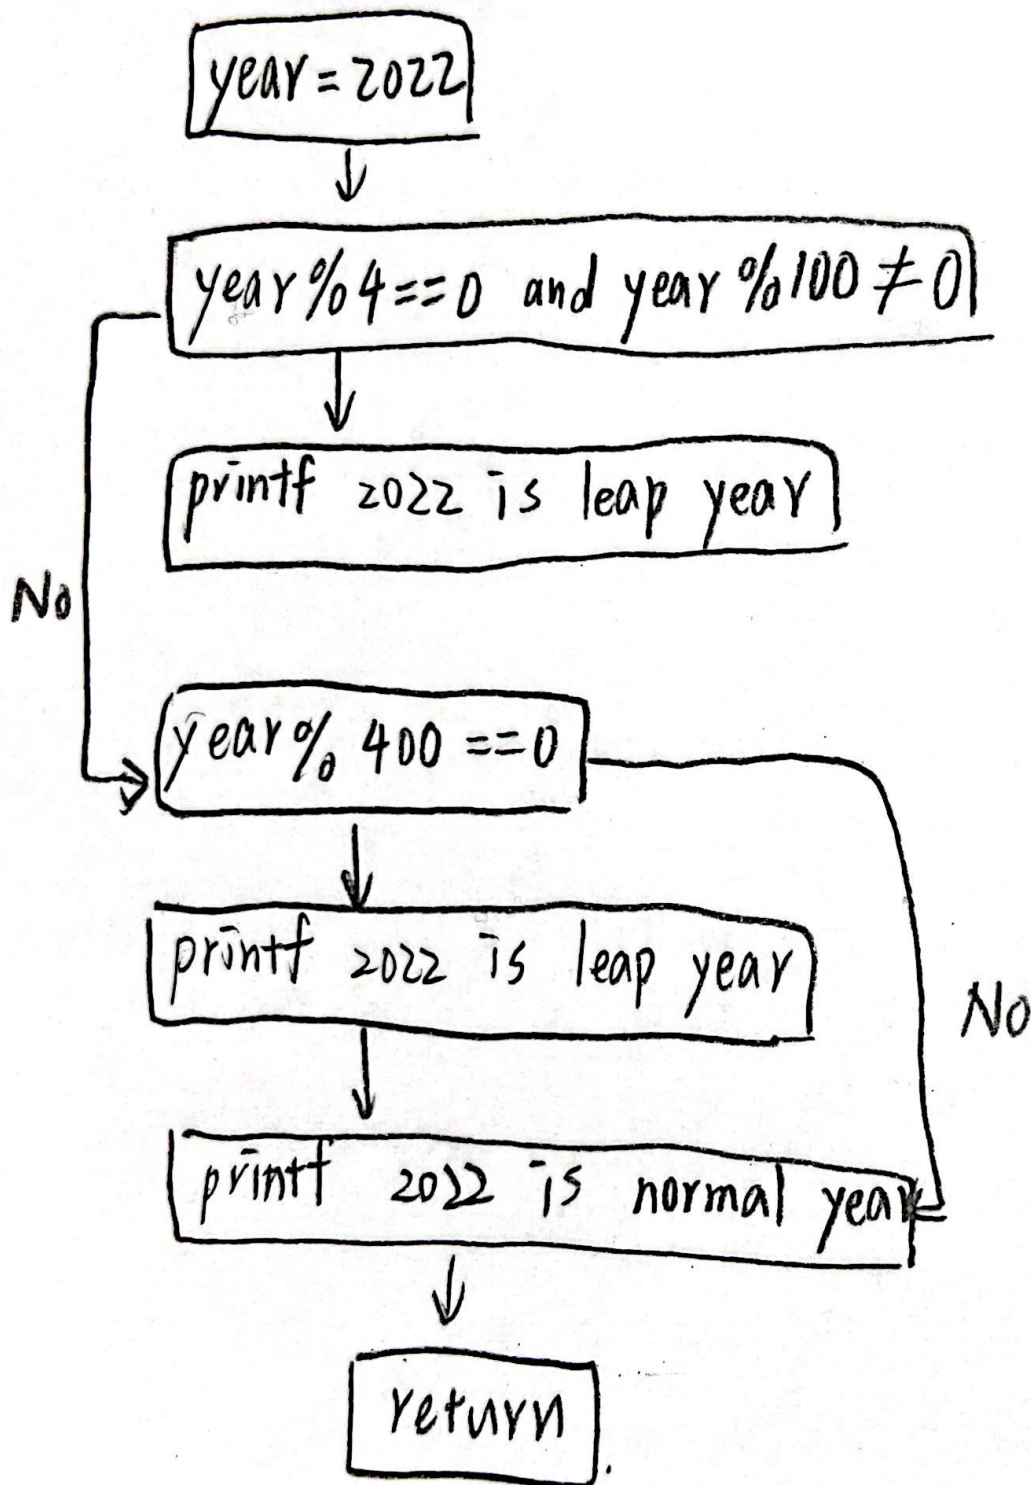 year=2022
year%4==0 and year%100≠0
printf 2022 is leap year
No
year% 400 ==0
printf 2022 is leap year
No
printf 2022 is normal year
return